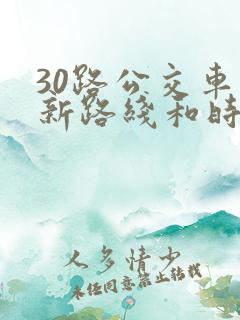 30路公交车
新路线和时
人多情少
未经同意禁止转载